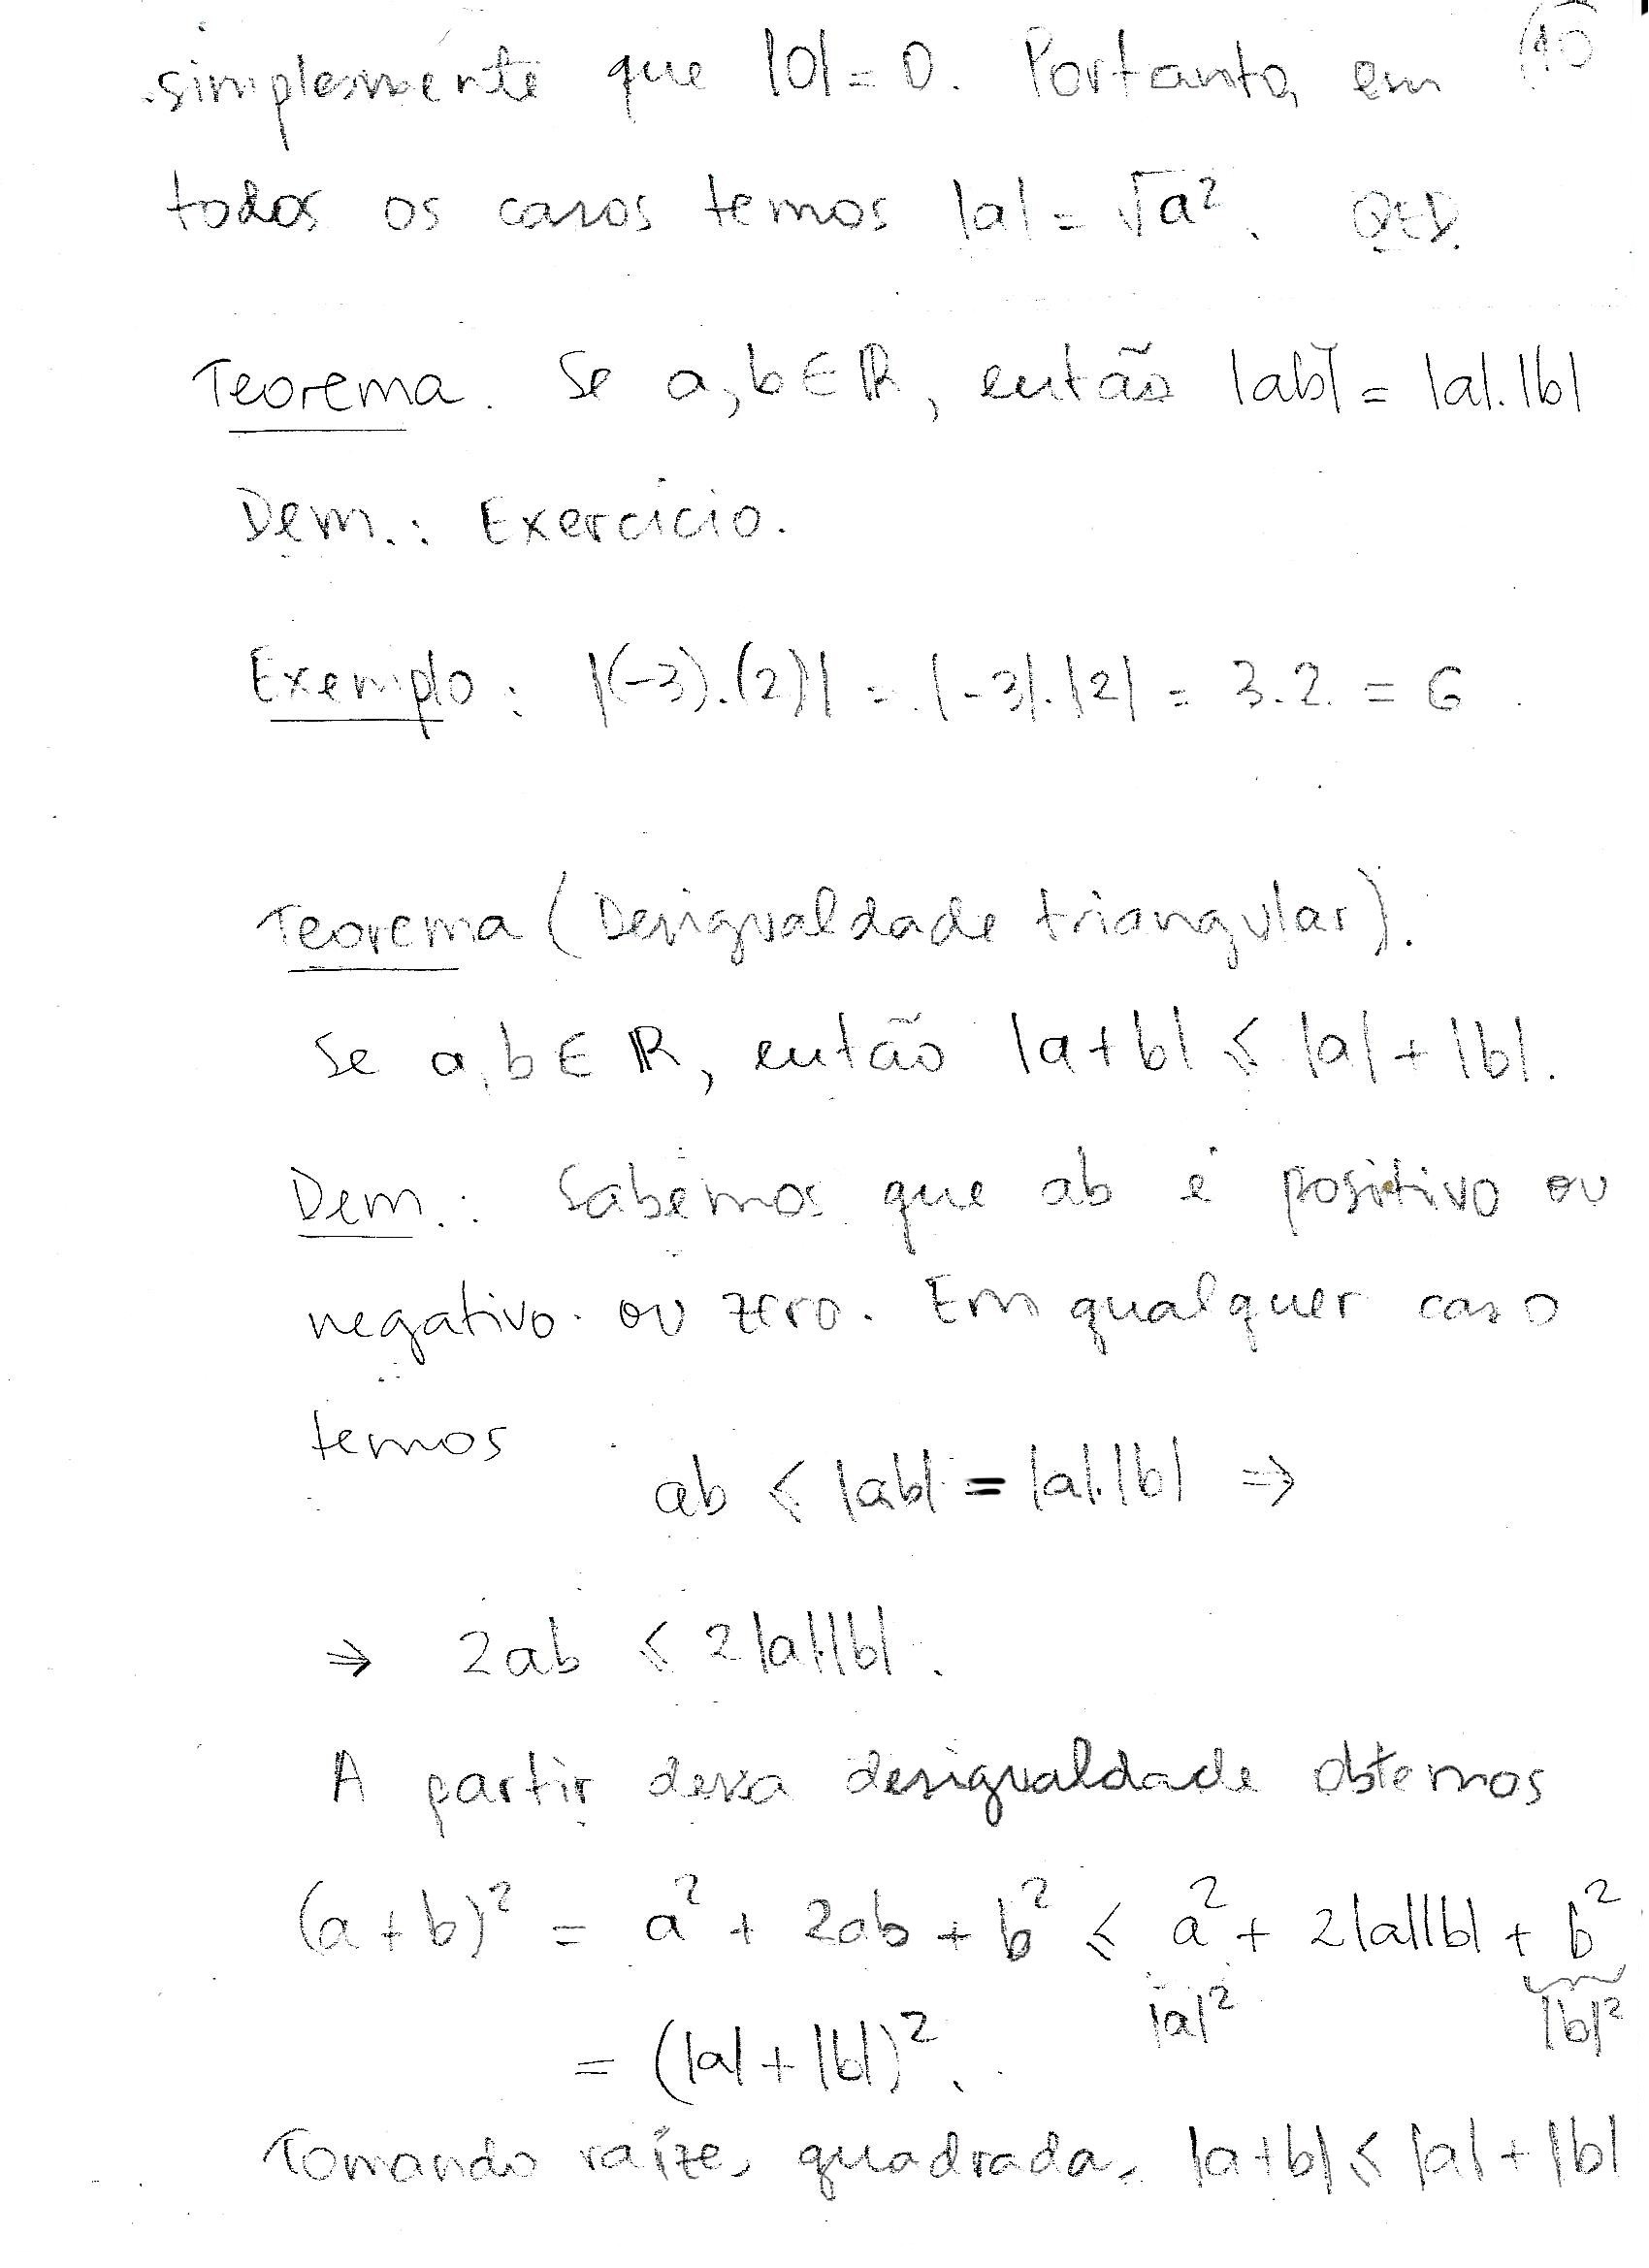 simplesmente que |0| = 0. Portanto, em (10)
todos os casos temos |a| = √a². QED.
Teorema. Se a, b ∈ ℝ, então |ab| = |a|.|b|
Dem.: Exercício.
Exemplo: |(-3).(2)| = |-3|.|2| = 3.2. = 6.
Teorema (Desigualdade triangular).
Se a, b ∈ ℝ, então |a+b| ≤ |a| + |b|.
Dem.: Sabemos que ab é positivo ou
negativo ou zero. Em qualquer caso
temos
ab ≤ |ab| = |a|.|b| ⇒
⇒ 2ab ≤ 2|a||b|.
A partir dessa desigualdade obtemos
(a+b)² = a² + 2ab + b² ≤ a² + 2|a||b| + b²
|a|² |b|²
= (|a| + |b|)².
Tomando raízes quadradas, |a+b| ≤ |a| + |b|